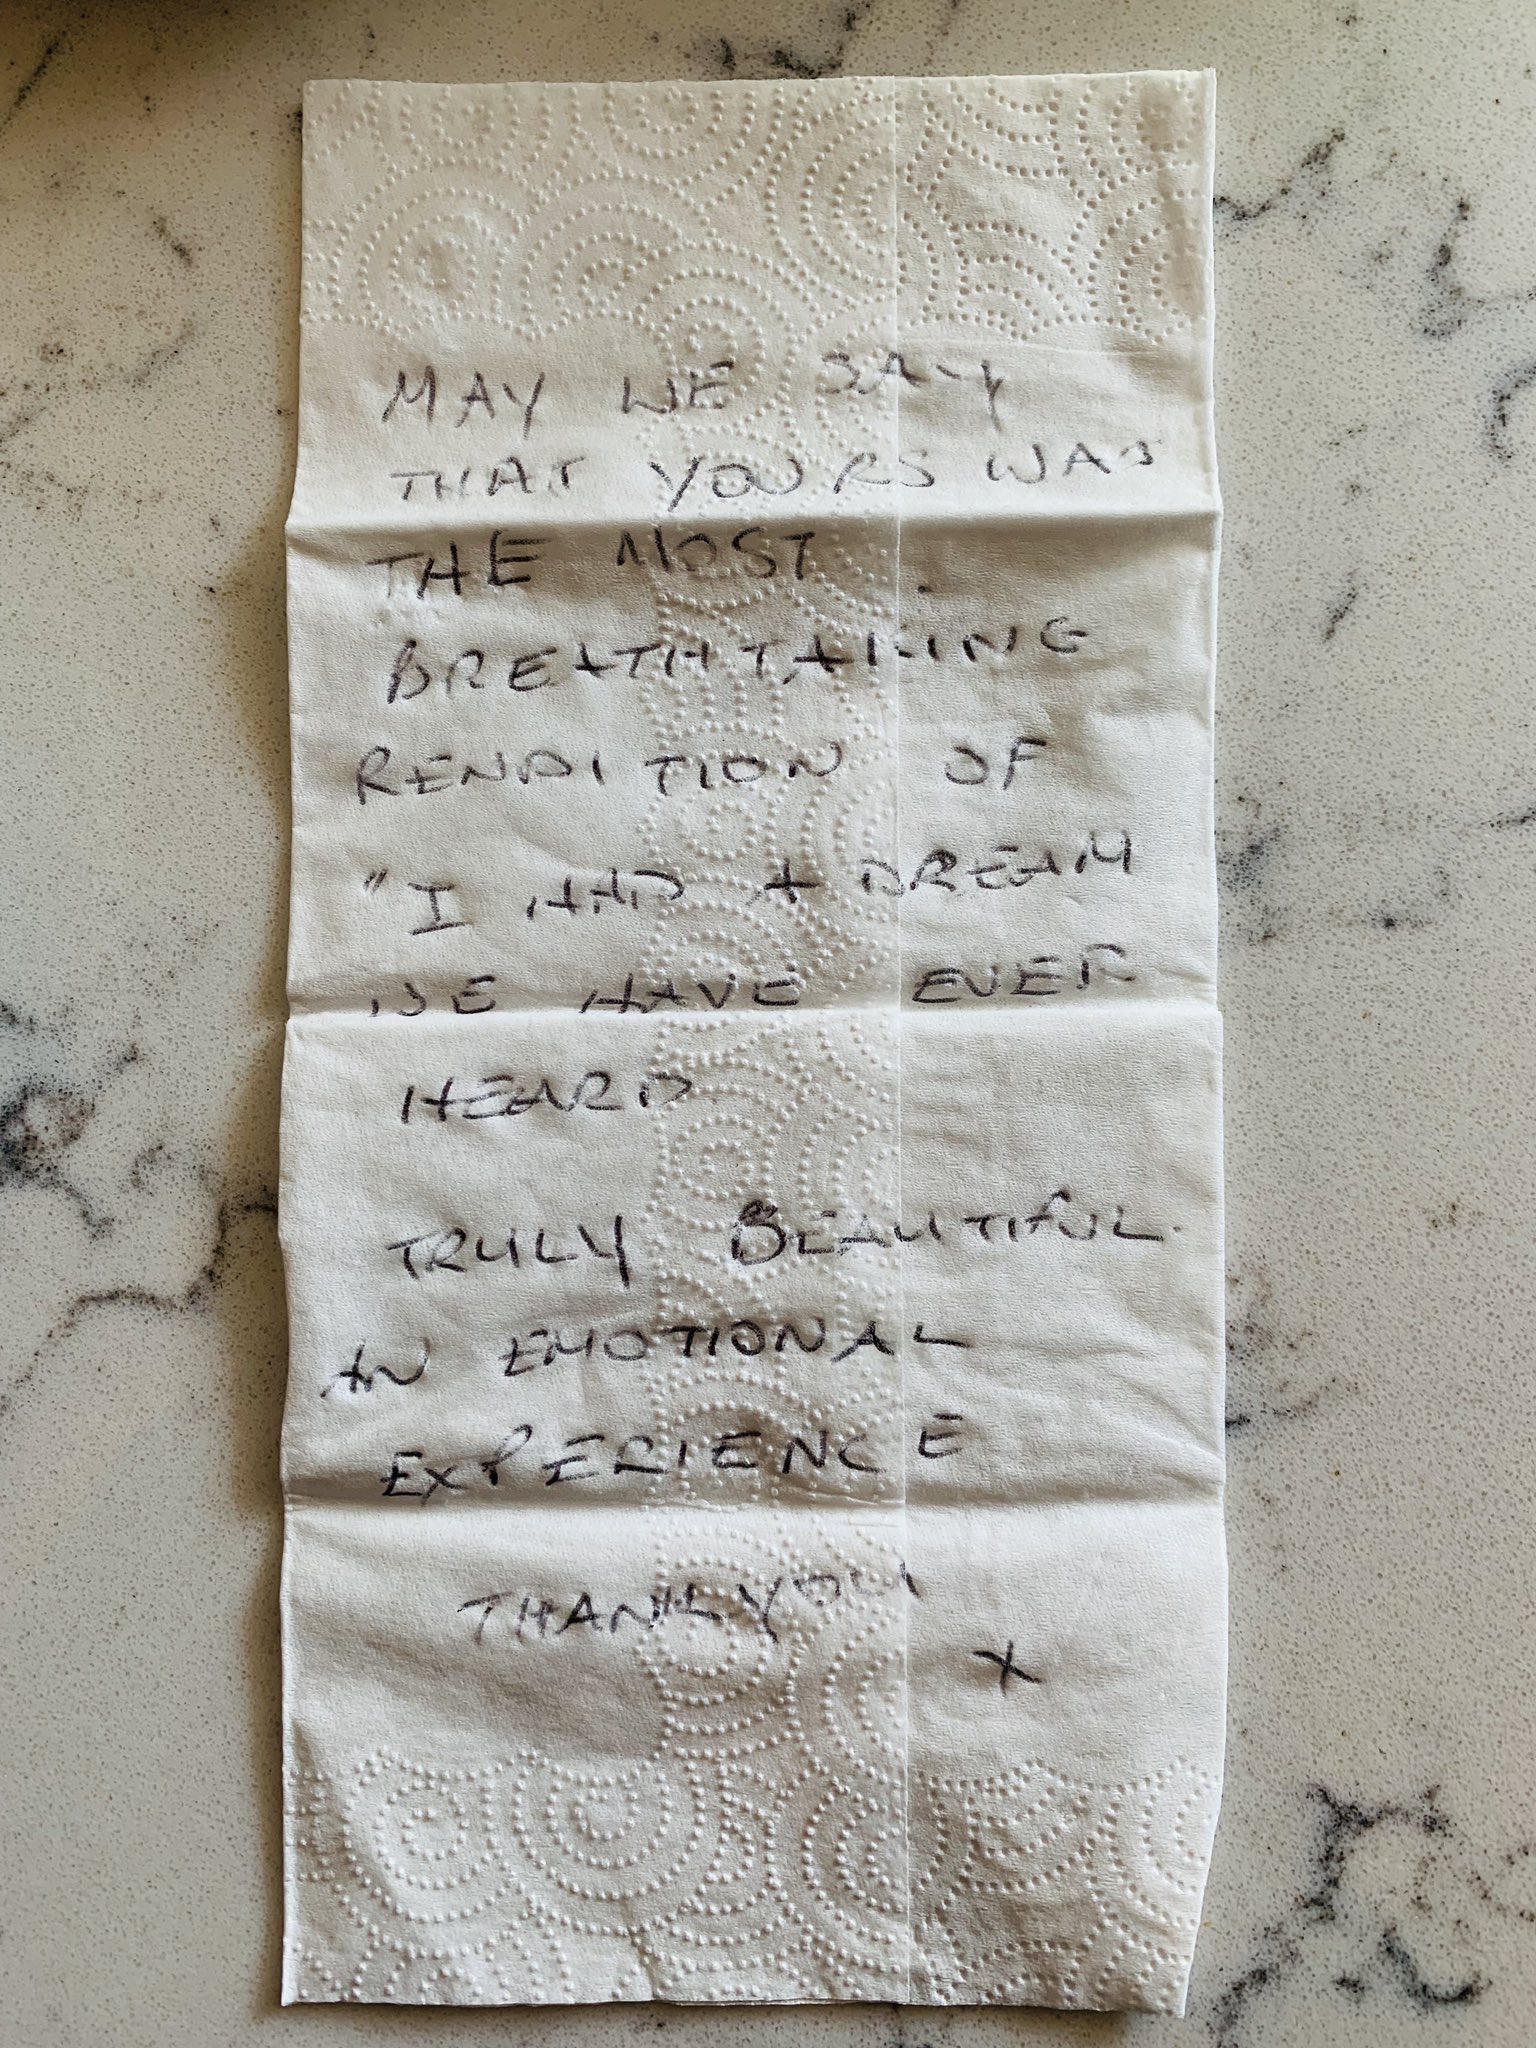 MAY WE SAY
THAT YOURS WAS
THE MOST
BREATHTAKING
RENDITION OF
"I HAD A DREAM
WE HAVE EVER
HEARD
TRULY BEAUTIFUL.
AN EMOTIONAL
EXPERIENCE
THANKYOU
X